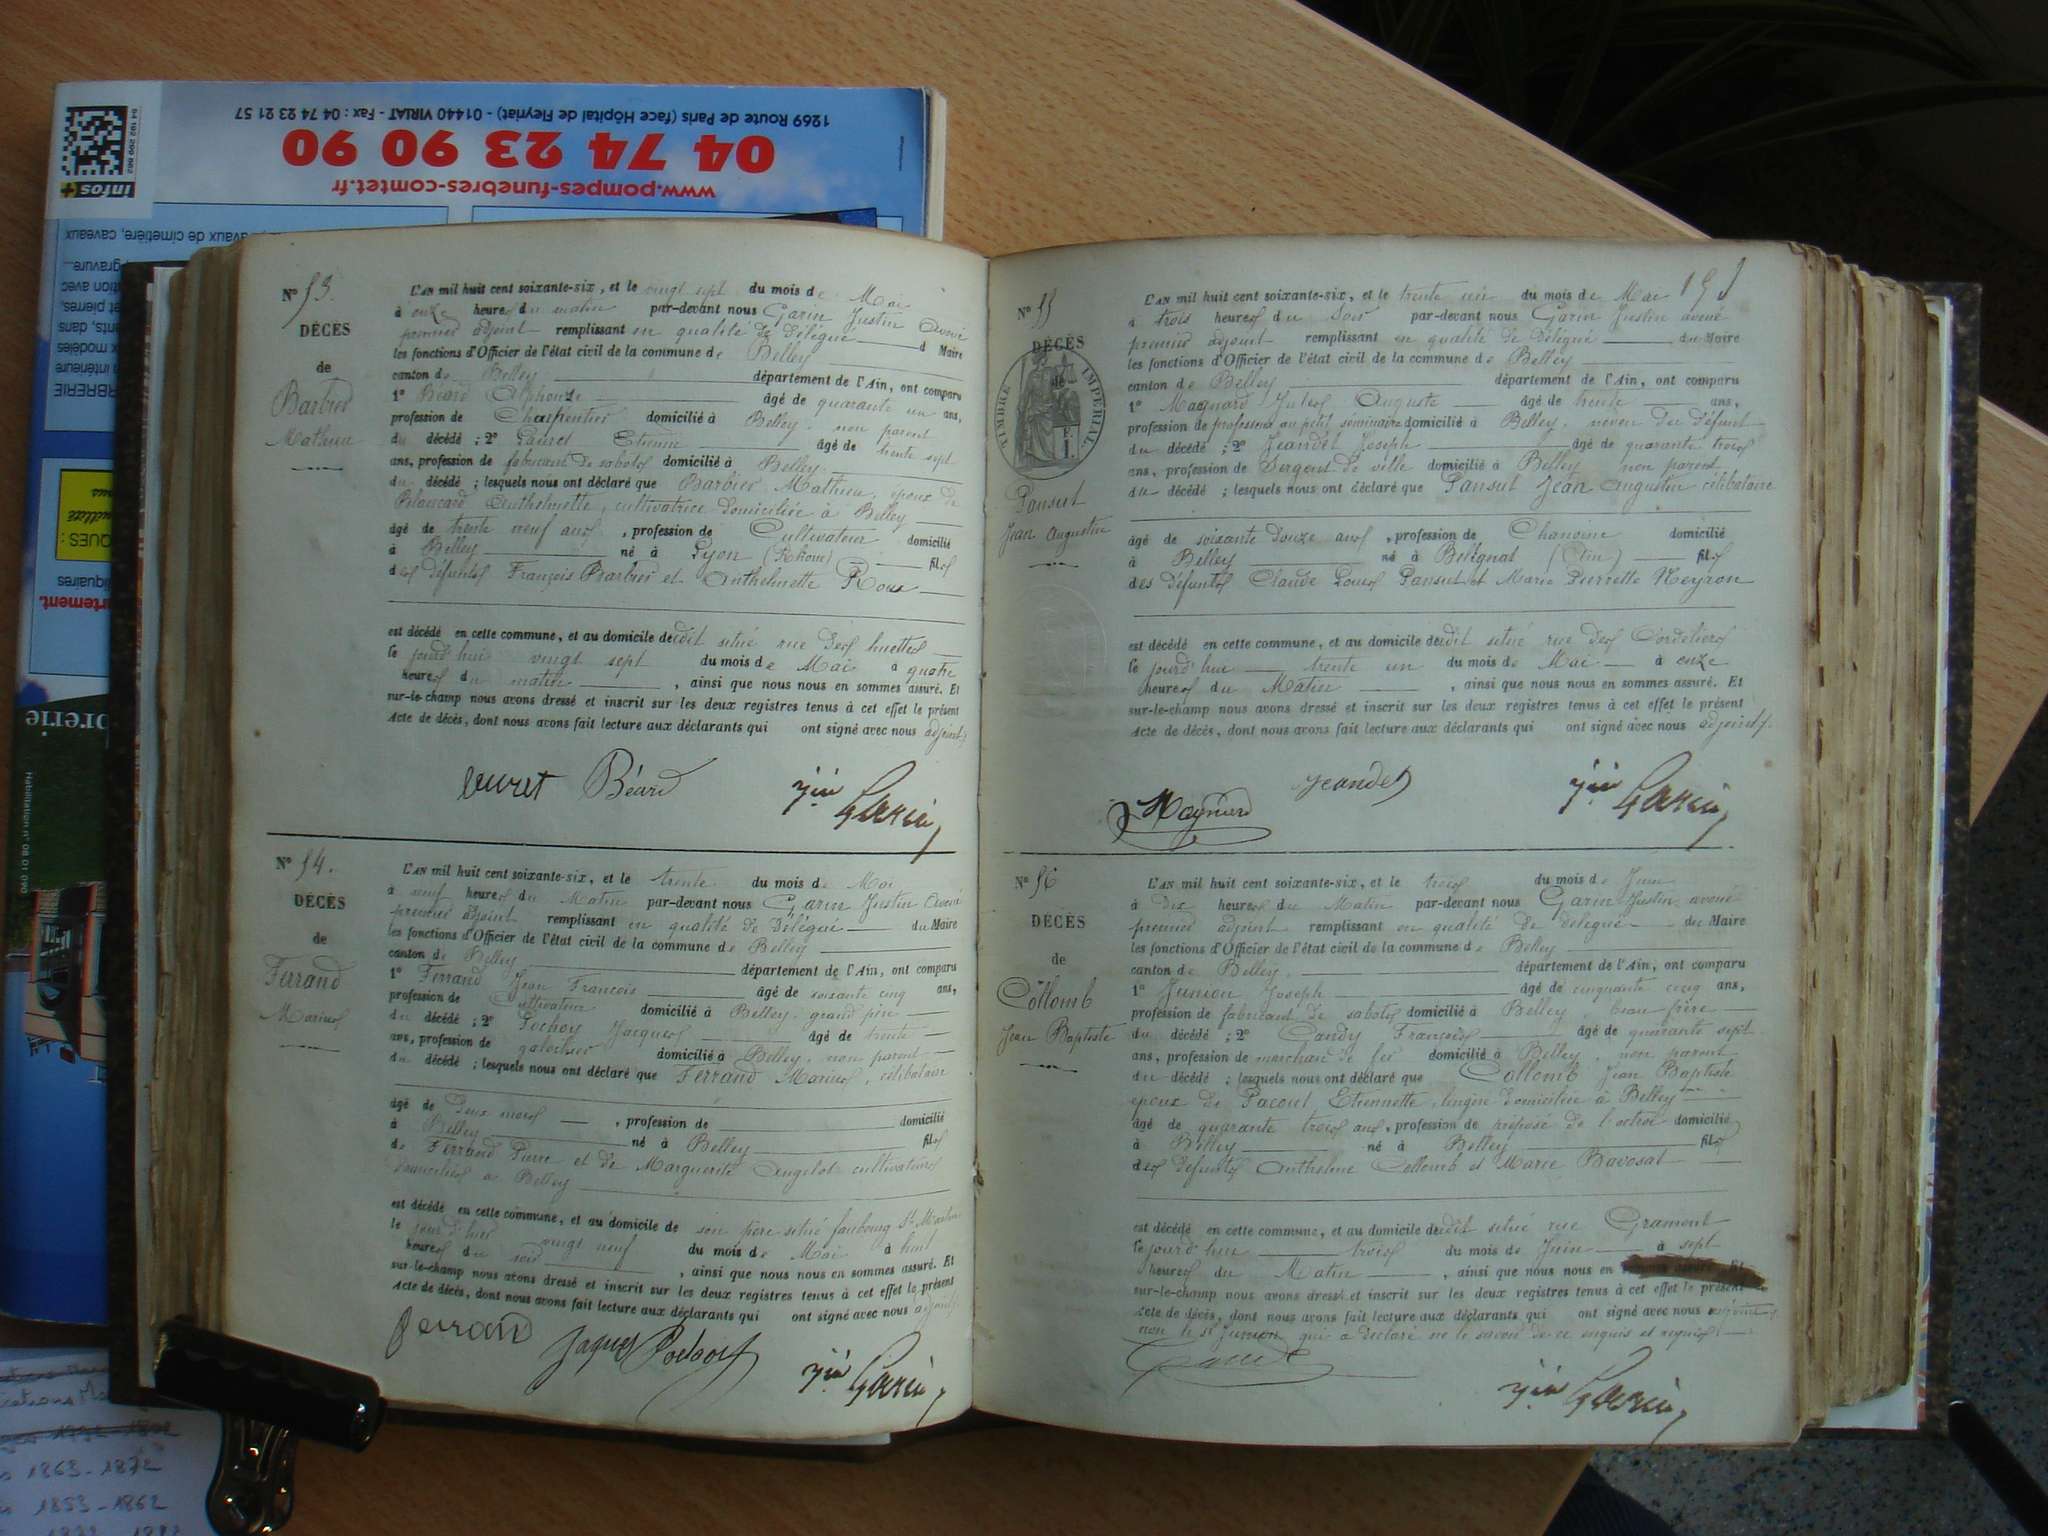 1269 Route de Paris (face Hôpital de Fleyriat) - 01440 VIRIAT - Fax : 04 74 23 21 57
04 74 23 90 90
www.pompes-funebres-comtet.fr
infos+
avaux de cimetière, caveaux
gravure
Habilitation n° 08 01 090
N° 53.
DÉCÈS
de
Barbier
Mathieu
L'AN mil huit cent soixante-six, et le vingt sept du mois de Mai
à onze heures du matin par-devant nous Garin Justin avoué
premier adjoint remplissant en qualité de Délégué d Maire
les fonctions d'Officier de l'état civil de la commune de Belley
canton de Belley département de l'Ain, ont comparu
1° Béard Alphonse âgé de quarante un ans,
profession de Charpentier domicilié à Belley, non parent
du décédé ; 2° Lauret Etienne âgé de trente sept
ans, profession de fabricant de sabots domicilié à Belley
du décédé ; lesquels nous ont déclaré que Barbier Mathieu, époux de
Blancard Anthelmette, cultivatrice domiciliée à Belley
âgé de trente neuf ans, profession de Cultivateur domicilié
à Belley né à Lyon (Rhône) fils
des défunts François Barbier et Anthelmette Roux
est décédé en cette commune, et au domicile de dit situé rue des huettes
le jourd'hui vingt sept du mois de Mai à quatre
heures du matin, ainsi que nous nous en sommes assuré. Et
sur-le-champ nous avons dressé et inscrit sur les deux registres tenus à cet effet le présent
Acte de décès, dont nous avons fait lecture aux déclarants qui ont signé avec nous adjoint
Lauret Béard Jin Garin
N° 54.
DÉCÈS
de
Ferrand
Marius
L'AN mil huit cent soixante-six, et le trente du mois de Mai
à neuf heures du Matin par-devant nous Garin Justin avoué
premier adjoint remplissant en qualité de Délégué du Maire
les fonctions d'Officier de l'état civil de la commune de Belley
canton de Belley département de l'Ain, ont comparu
1° Ferrand Jean François âgé de soixante cinq ans,
profession de Cultivateur domicilié à Belley, grand père
du décédé ; 2° Pochoy Jacques âgé de trente
ans, profession de galochier domicilié à Belley, non parent
du décédé ; lesquels nous ont déclaré que Ferrand Marius, célibataire
âgé de Deux mois, profession de domicilié
à Belley né à Belley fils
de Ferrand Pierre et de Marguerite Angelot cultivateurs
domiciliés à Belley
est décédé en cette commune, et au domicile de son père situé faubourg St Martin
le jour d'hier vingt neuf du mois de Mai à huit
heures du soir, ainsi que nous nous en sommes assuré. Et
sur-le-champ nous avons dressé et inscrit sur les deux registres tenus à cet effet le présent
Acte de décès, dont nous avons fait lecture aux déclarants qui ont signé avec nous adjoint
Ferrand Jaques Jin Garin
N° 55
DÉCÈS
de
TIMBRE IMPÉRIAL
Pansut
Jean Augustin
L'AN mil huit cent soixante-six, et le trente un du mois de Mai
à trois heures du soir par-devant nous Garin Justin avoué
premier adjoint remplissant en qualité de Délégué du Maire
les fonctions d'Officier de l'état civil de la commune de Belley
canton de Belley département de l'Ain, ont comparu
1° Magnard Jules Auguste âgé de trente ans,
profession de professeur au petit séminaire domicilié à Belley, neveu du défunt
du décédé ; 2° Jeandet Joseph âgé de quarante trois
ans, profession de Sergent de ville domicilié à Belley non parent
du décédé ; lesquels nous ont déclaré que Pansut Jean Augustin célibataire
âgé de soixante douze ans, profession de Chanoine domicilié
à Belley né à Bélignat (Ain) fils
des défunts Claude Louis Pansut et Marie Pierrette Neyron
est décédé en cette commune, et au domicile de dit situé rue des Cordeliers
le jourd'hui trente un du mois de Mai à onze
heures du Matin, ainsi que nous nous en sommes assuré. Et
sur-le-champ nous avons dressé et inscrit sur les deux registres tenus à cet effet le présent
Acte de décès, dont nous avons fait lecture aux déclarants qui ont signé avec nous adjoint
Jeandet Jin Garin
N° 56
DÉCÈS
de
Collomb
Jean Baptiste
L'AN mil huit cent soixante-six, et le trois du mois de Juin
à Dix heures du Matin par-devant nous Garin Justin avoué
premier adjoint remplissant en qualité de délégué du Maire
les fonctions d'Officier de l'état civil de la commune de Belley
canton de Belley département de l'Ain, ont comparu
1° Junion Joseph âgé de cinquante cinq ans,
profession de fabricant de sabots domicilié à Belley, beau frère
du décédé ; 2° Candy François âgé de quarante sept
ans, profession de marchand de fer domicilié à Belley, non parent
du décédé ; lesquels nous ont déclaré que Collomb Jean Baptiste
époux de Pacoul Etiennette, lingère domiciliée à Belley
âgé de quarante trois ans, profession de préposé de l'octroi domicilié
à Belley né à Belley fils
des défunts Anthelme Collomb et Marie Bavosat
est décédé en cette commune, et au domicile de dit situé rue Gramont
le jourd'hui trois du mois de Juin à sept
heures du Matin, ainsi que nous nous en
sur-le-champ nous avons dressé et inscrit sur les deux registres tenus à cet effet le présent
Acte de décès, dont nous avons fait lecture aux déclarants qui ont signé avec nous adjoint
non le Sr Junion qui a déclaré ne le savoir de ce enquis et requis
Candy Jin Garin
1863-1872
1853-1862